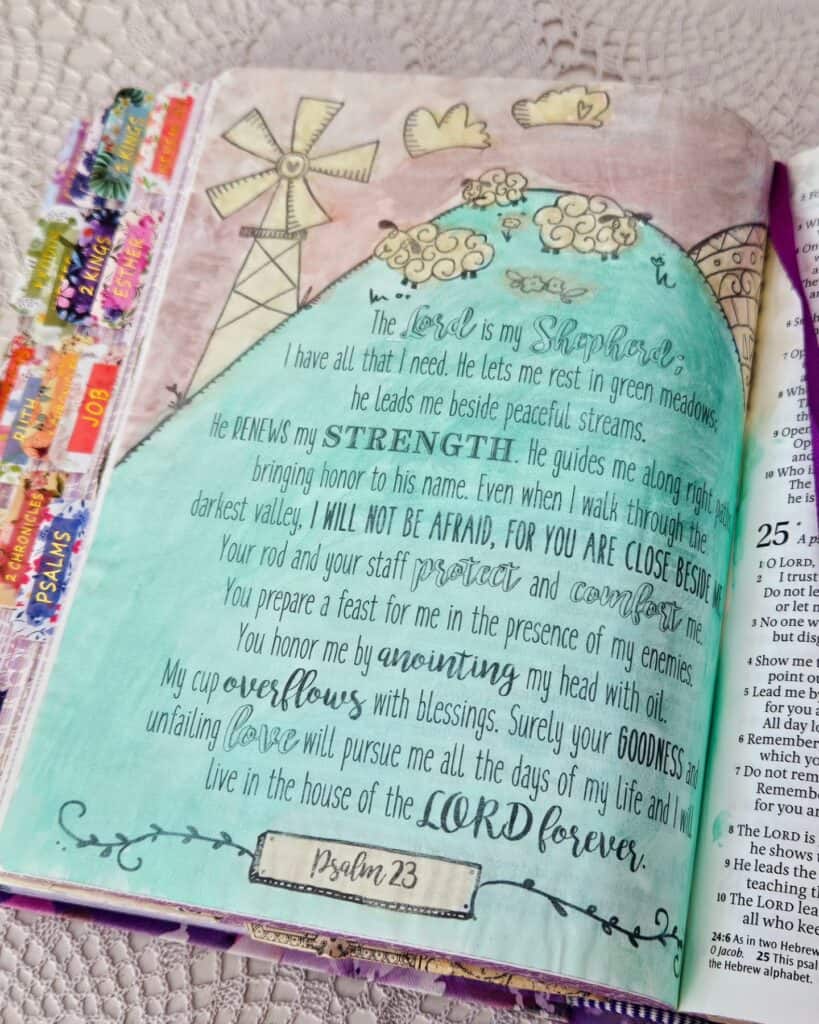 2 KINGS
2 KINGS
ESTHER
RUTH
JOB
2 CHRONICLES
PSALMS
The Lord is my Shepherd;
I have all that I need. He lets me rest in green meadows;
he leads me beside peaceful streams.
He RENEWS my STRENGTH. He guides me along right
bringing honor to his name. Even when I walk through the
darkest valley, I WILL NOT BE AFRAID, FOR YOU ARE CLOSE BESIDE
Your rod and your staff protect and comfort me.
You prepare a feast for me in the presence of my enemies.
You honor me by anointing my head with oil.
My cup overflows with blessings. Surely your GOODNESS and
unfailing love will pursue me all the days of my life and I will
live in the house of the LORD forever.
Psalm 23
7 Op
8 Wh
9 Oper
Op
and
10 Who i
The
he is
25
A p
1 O LORD,
2 I trust
Do not le
or let m
3 No one w
but disg
4 Show me t
point ou
5 Lead me by
for you a
All day lo
6 Remember
which yo
7 Do not rem
Remembe
for you ar
8 The LORD is
he shows t
9 He leads the
teaching th
10 The LORD lea
all who kee
24:6 As in two Hebrew
O Jacob. 25 This psal
the Hebrew alphabet.